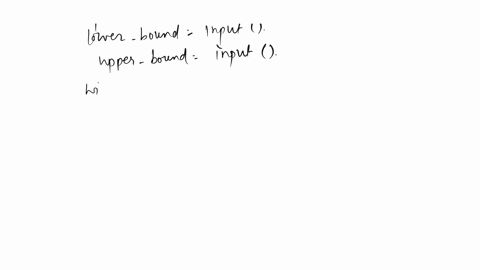 lower_bound = input ().
upper_bound = input ().
wi